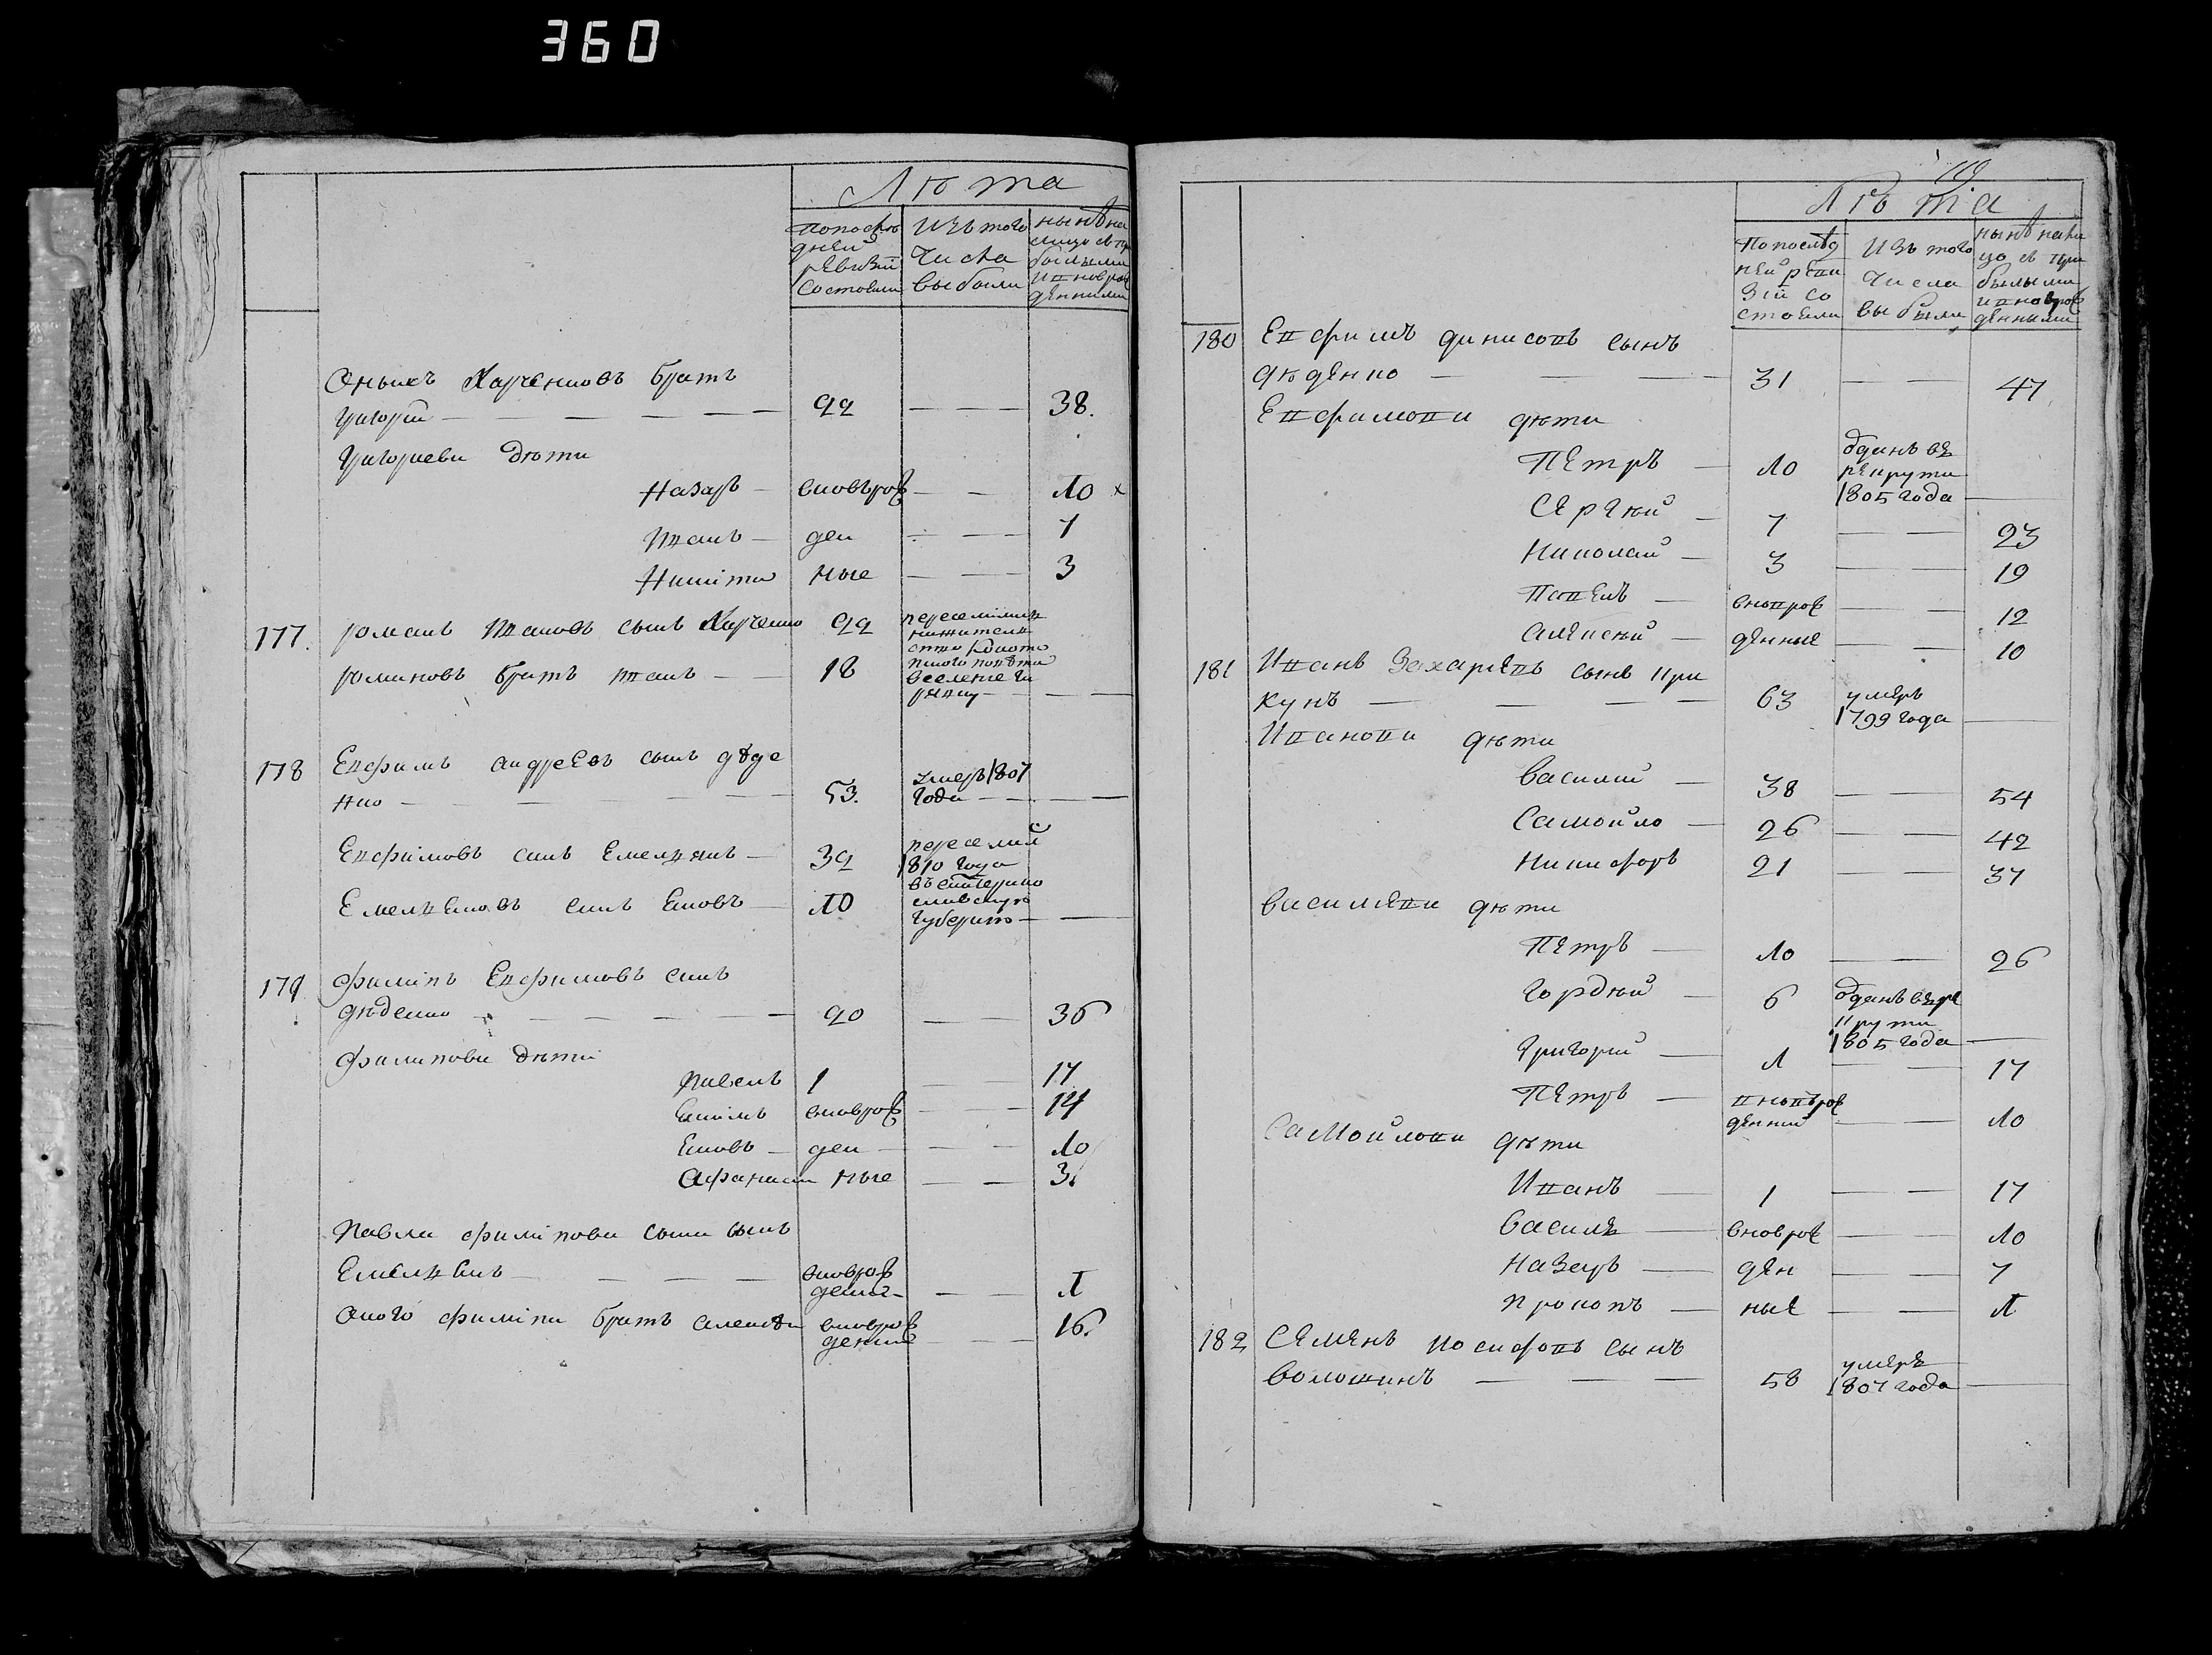 360
Лѣта
по послѣ
дней
ревизіи
состояли
изъ того
числа
выбыли
нынѣ на
лицо съ при
былыми
и новорож
денными
Оныхъ Харченковъ братъ
Григорій — 22 — 38.
Григорьевы дѣти
Назаръ — вновьрож — 10 х
Иванъ — ден — 7
Никита ные — 3
177. Романъ Ивановъ сынъ Харченко 22
Романовъ братъ Иванъ — 18
178 Евфимъ Андреевъ сынъ дѣде
нко — 53. умеръ 1807
года —
Евфимовъ сынъ Емельянъ — 32
переселил
1810 года
въ екатерино
славскую
губернію —
Емельяновъ сынъ Яковъ — 10
179 Филипъ Евфимовъ сынъ
дѣденко — 20 — 36
Филиповы дѣти
Павелъ 1 — 17
вновьрож — 14
Яковъ — ден — 10
Афанасій ные — 3.
Павла Филипова сына сынъ
Емельянъ — вноврож
денъ — — 1
Оного Филипа братъ Алексѣй вноврож
денный — 16.
119
Лѣта
По послѣд
ней реви
зіи со
стояли
Изъ того
числа
выбыли
нынѣ нали
цо съ при
былыми
и новорож
денными
180 Евфимъ Динисовъ сынъ
Дѣденко — 31 — 47
Евфимови дѣти
Петръ — 10 отданъ въ
рекруты
1805 года —
Сергѣй — 7 — 23
Николай — 3 — 19
Павелъ — вноврож — 12
Алексѣй — денные — 10
181 Иванъ Захаріевъ сынъ При
кунъ — 63 умеръ
1799 года —
Иванови дѣти
Василій — 38 — 54
Самойло — 26 — 42
Никифоръ 21 — 37
Василіеви дѣти
Петръ — 10 — 26
Гордѣй — 6 отданъ въ ре
круты
1805 года —
Григорій — 1 — 17
Петръ — вноврож
денній — 10
Самойлови дѣти
Иванъ — 1 — 17
Василь — вноврож — 10
Назаръ — ден — 7
Прокопъ — ные — 1
182 Семенъ Иосифовъ сынъ
Волошинъ — 58 умеръ
1807 года —